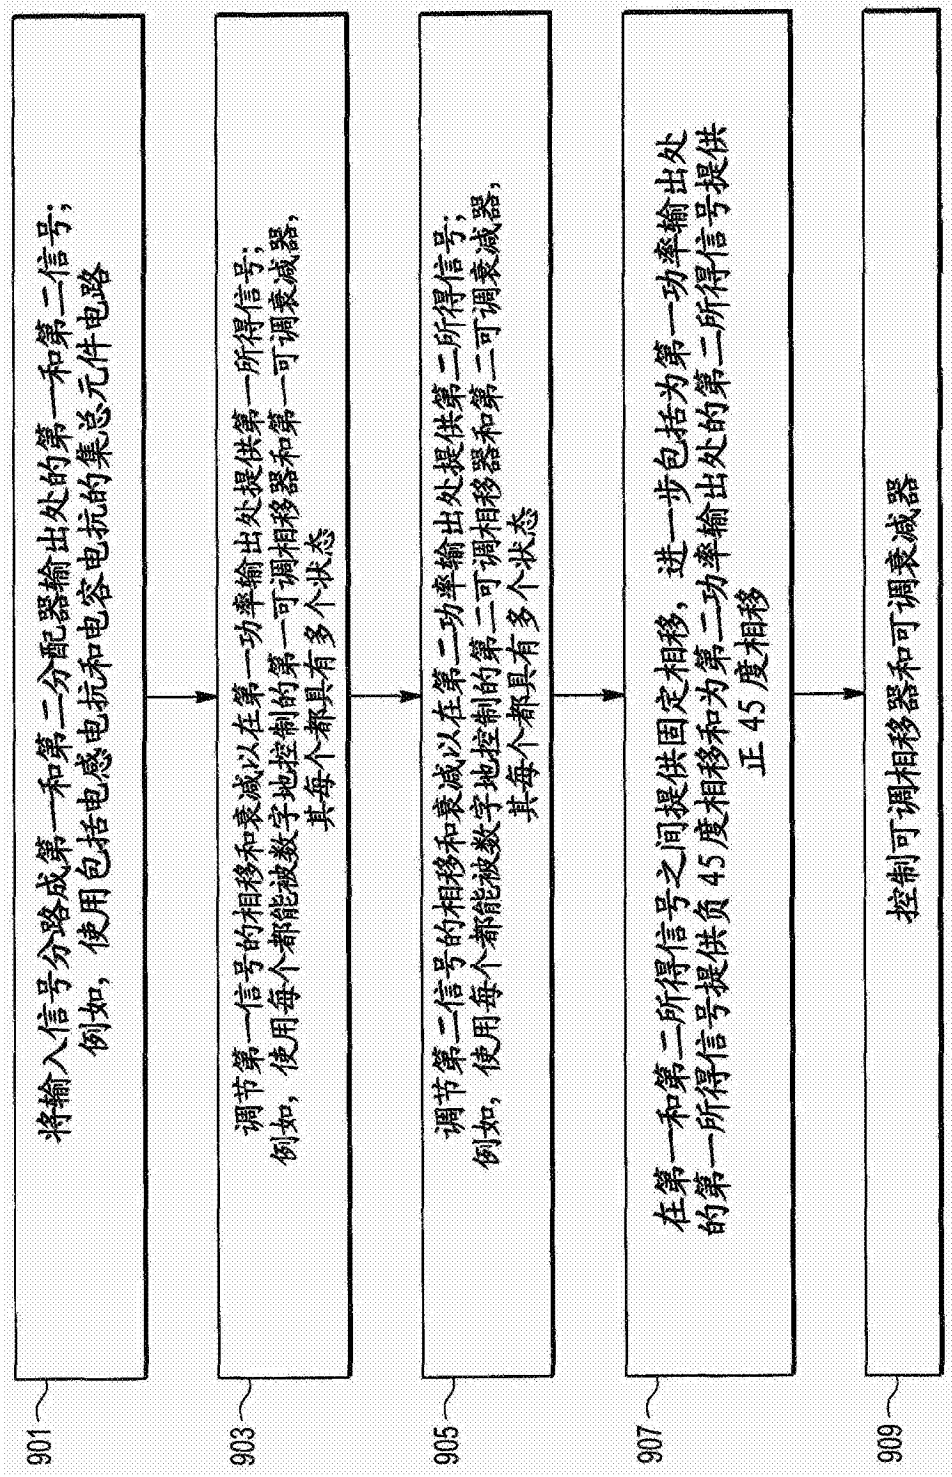 901
将输入信号分路成第一和第二分配器输出处的第一和第二信号；
例如，使用包括电感电抗和电容电抗的集总元件电路
903
调节第一信号的相移和衰减以在第一功率输出处提供第一所得信号；
例如，使用每个都能被数字地控制的第一可调相移器和第一可调衰减器，
其每个都具有多个状态
905
调节第二信号的相移和衰减以在第二功率输出处提供第二所得信号；
例如，使用每个都能被数字地控制的第二可调相移器和第二可调衰减器，
其每个都具有多个状态
907
在第一和第二所得信号之间提供固定相移，进一步包括为第一功率输出处
的第一所得信号提供负 45 度相移和为第二功率输出处的第二所得信号提供
正 45 度相移
909
控制可调相移器和可调衰减器